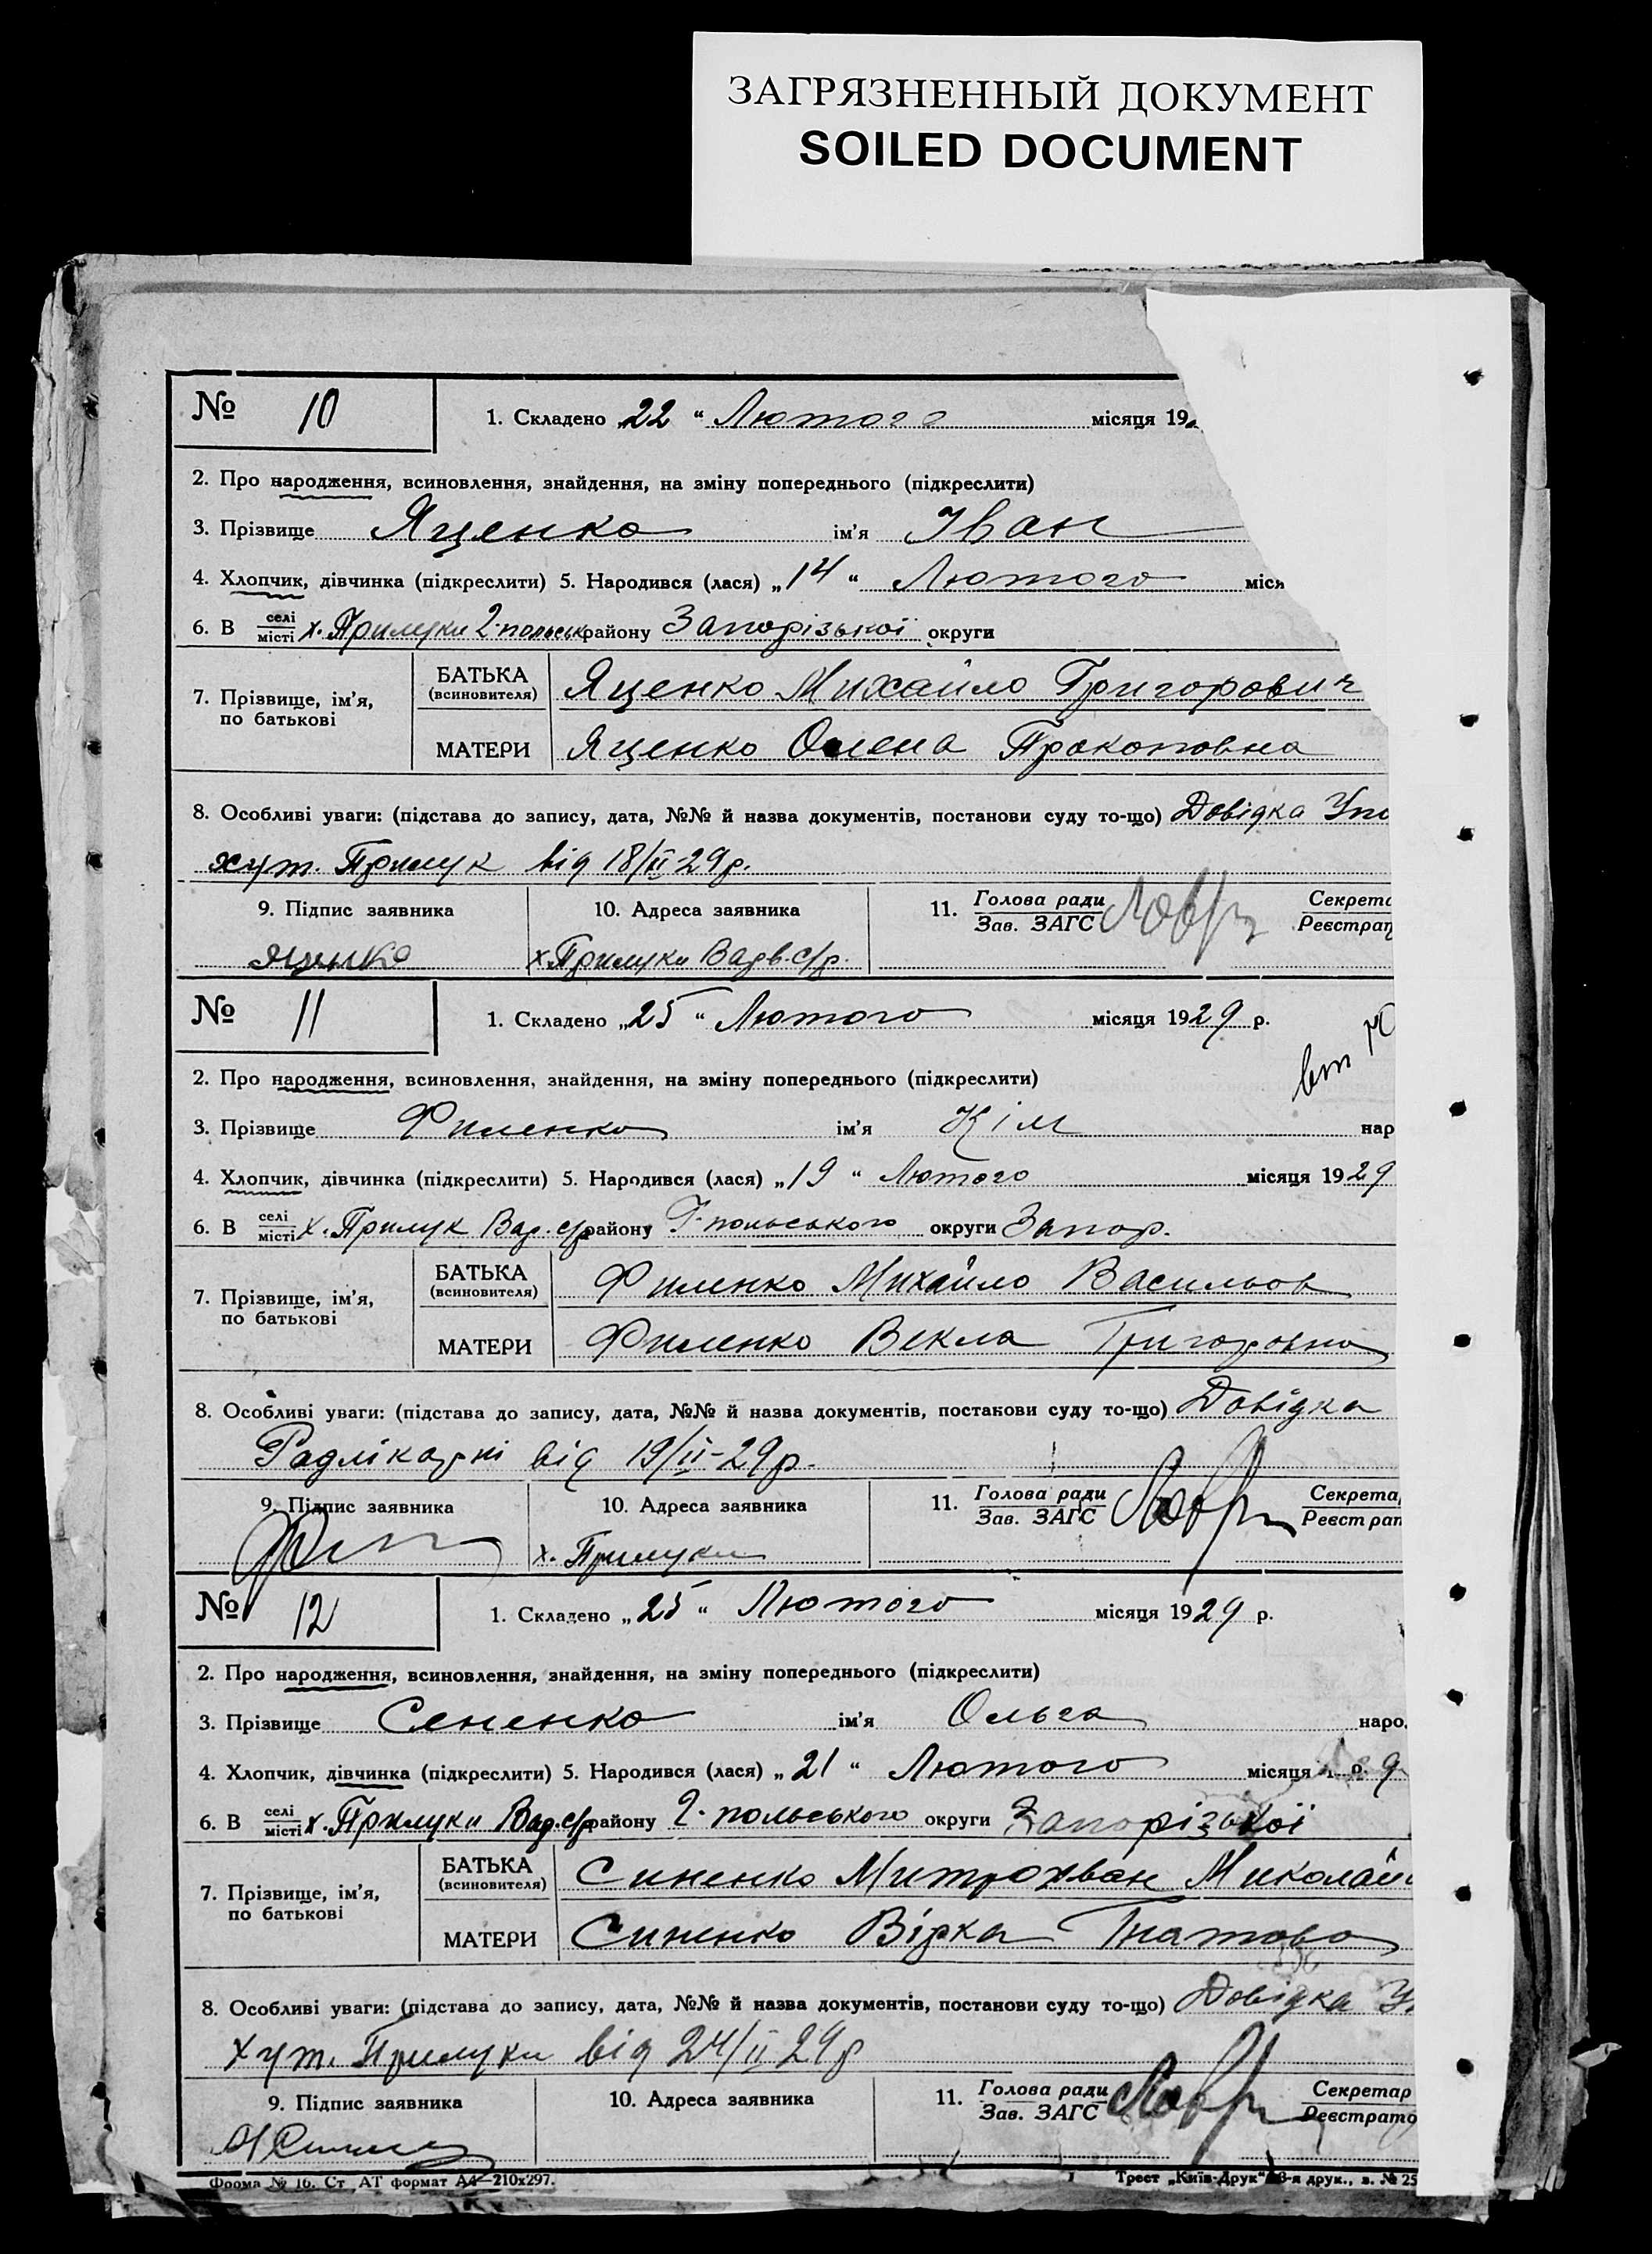 ЗАГРЯЗНЕННЫЙ ДОКУМЕНТ
SOILED DOCUMENT
№ 10
1. Складено „22 “ Лютого місяця 19
2. Про народження, всиновлення, знайдення, на зміну попереднього (підкреслити)
3. Прізвище Яценко ім'я Іван
4. Хлопчик, дівчинка (підкреслити) 5. Народився (лася) „14 “ Лютого міся
6. В селі місті х. Прилуки Г-польськ району Запорізької округи
7. Прізвище, ім'я, по батькові
БАТЬКА (всиновителя) Яценко Михайло Григорович
МАТЕРИ Яценко Олена Прокоповна
8. Особливі уваги: (підстава до запису, дата, №№ й назва документів, постанови суду то-що) Довідка Упо
хут. Прилук від 18/ІІ 29р.
9. Підпис заявника 10. Адреса заявника 11. Голова ради Зав. ЗАГС Секрета Реєстрат
Яценко х. Прилуки Вадв. с/р.
№ 11
1. Складено „25 “ Лютого місяця 1929 р.
2. Про народження, всиновлення, знайдення, на зміну попереднього (підкреслити)
3. Прізвище Филенко ім'я Кім нар
4. Хлопчик, дівчинка (підкреслити) 5. Народився (лася) „19 “ Лютого місяця 1929
6. В селі місті х. Прилук Вад. с/р району Г-польського округи Запор.
7. Прізвище, ім'я, по батькові
БАТЬКА (всиновителя) Филенко Михайло Васильов
МАТЕРИ Филенко Векла Григоровна
8. Особливі уваги: (підстава до запису, дата, №№ й назва документів, постанови суду то-що) Довідка
Радлікарні від 19/ІІ-29р.
9. Підпис заявника 10. Адреса заявника 11. Голова ради Зав. ЗАГС Секрета Реєстрат
х. Прилуки
№ 12
1. Складено „25 “ Лютого місяця 1929 р.
2. Про народження, всиновлення, знайдення, на зміну попереднього (підкреслити)
3. Прізвище Сененко ім'я Ольга наро
4. Хлопчик, дівчинка (підкреслити) 5. Народився (лася) „21 “ Лютого місяця 9
6. В селі місті х. Прилуки Вад. с/р району Г-польського округи Запорізької
7. Прізвище, ім'я, по батькові
БАТЬКА (всиновителя) Синенко Митрохван Миколай
МАТЕРИ Синенко Вірка Гнатова
8. Особливі уваги: (підстава до запису, дата, №№ й назва документів, постанови суду то-що) Довідка Уп
хут. Прилуки від 24/ІІ 29р
9. Підпис заявника 10. Адреса заявника 11. Голова ради Зав. ЗАГС Секретар Реєстрато
Форма № 16. Ст АТ формат А4—210х297. Трест „Київ-Друк“ 3-я друк., з. № 25